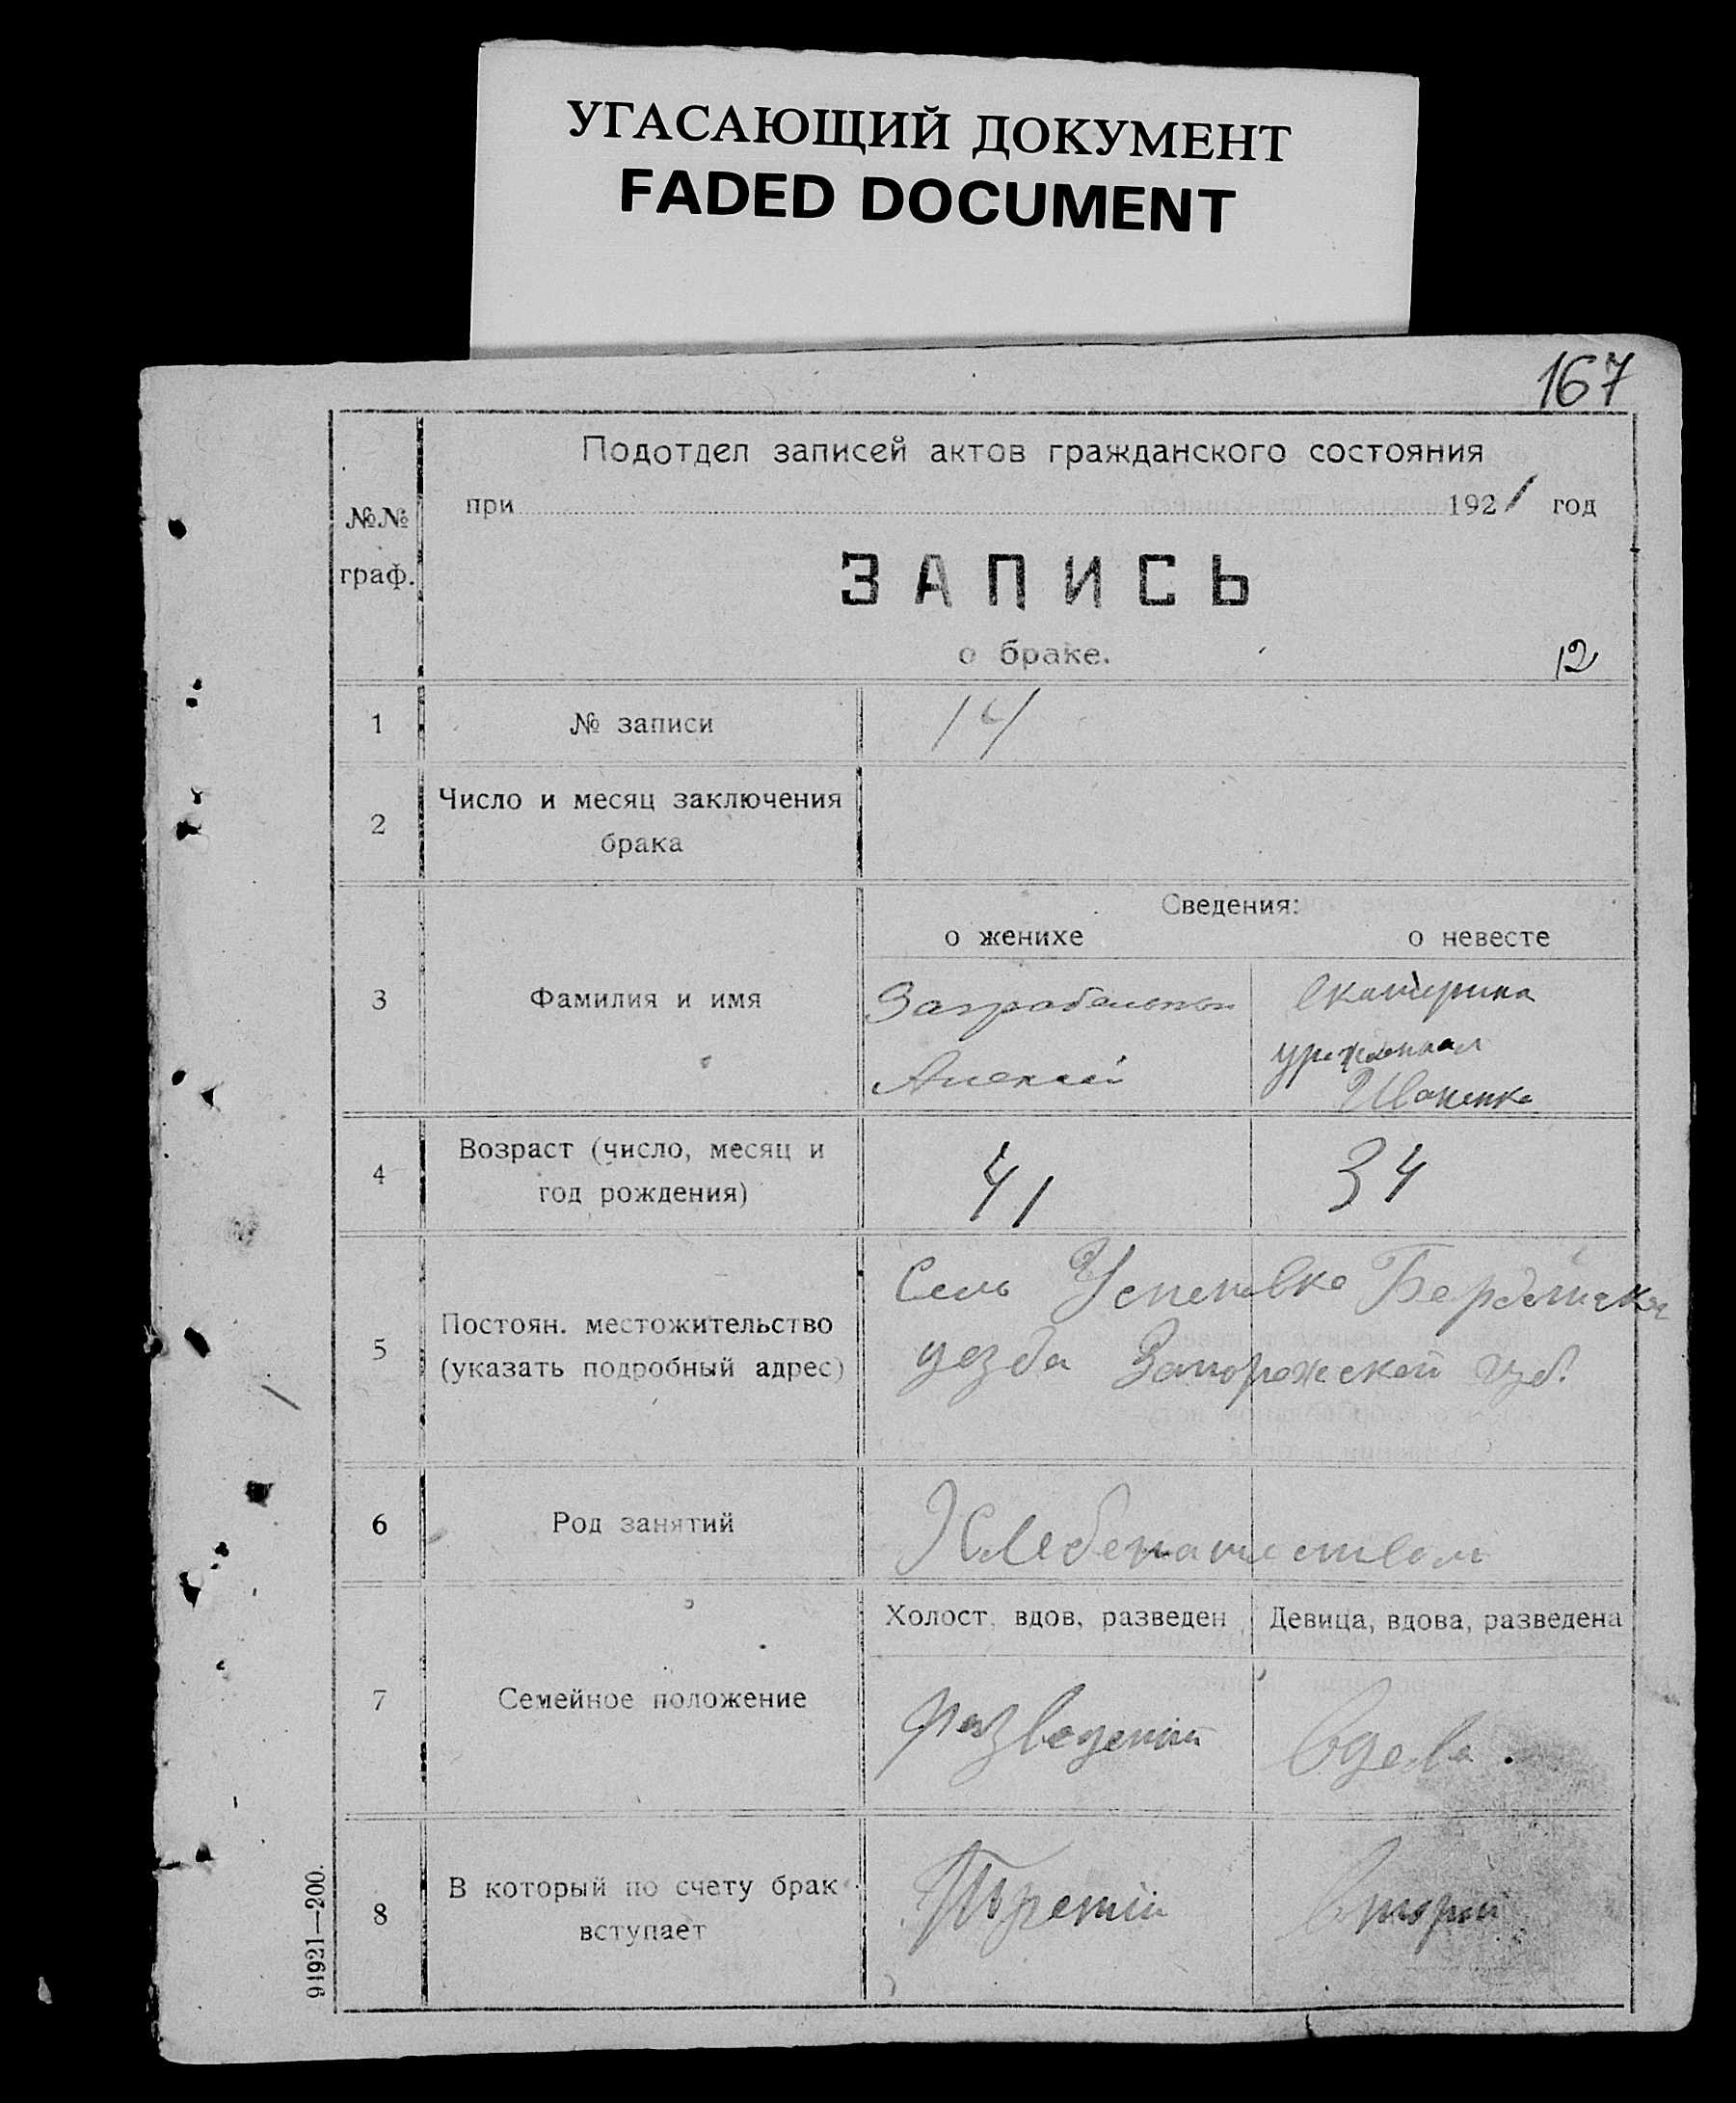 УГАСАЮЩИЙ ДОКУМЕНТ
FADED DOCUMENT
167
Подотдел записей актов гражданского состояния
№№ граф.
при 1921 год
ЗАПИСЬ
о браке.
12
1 № записи 14
2 Число и месяц заключения брака
Сведения:
о женихе о невесте
3 Фамилия и имя
Алексей
Екатерина
урожденная
4 Возраст (число, месяц и год рождения) 41 34
5 Постоян. местожительство (указать подробный адрес)
Село Успеновка
уезда Запорожской губ.
6 Род занятий
Холост, вдов, разведен Девица, вдова, разведена
7 Семейное положение
вдова.
8 В который по счету брак вступает Третий второй
91921—200.